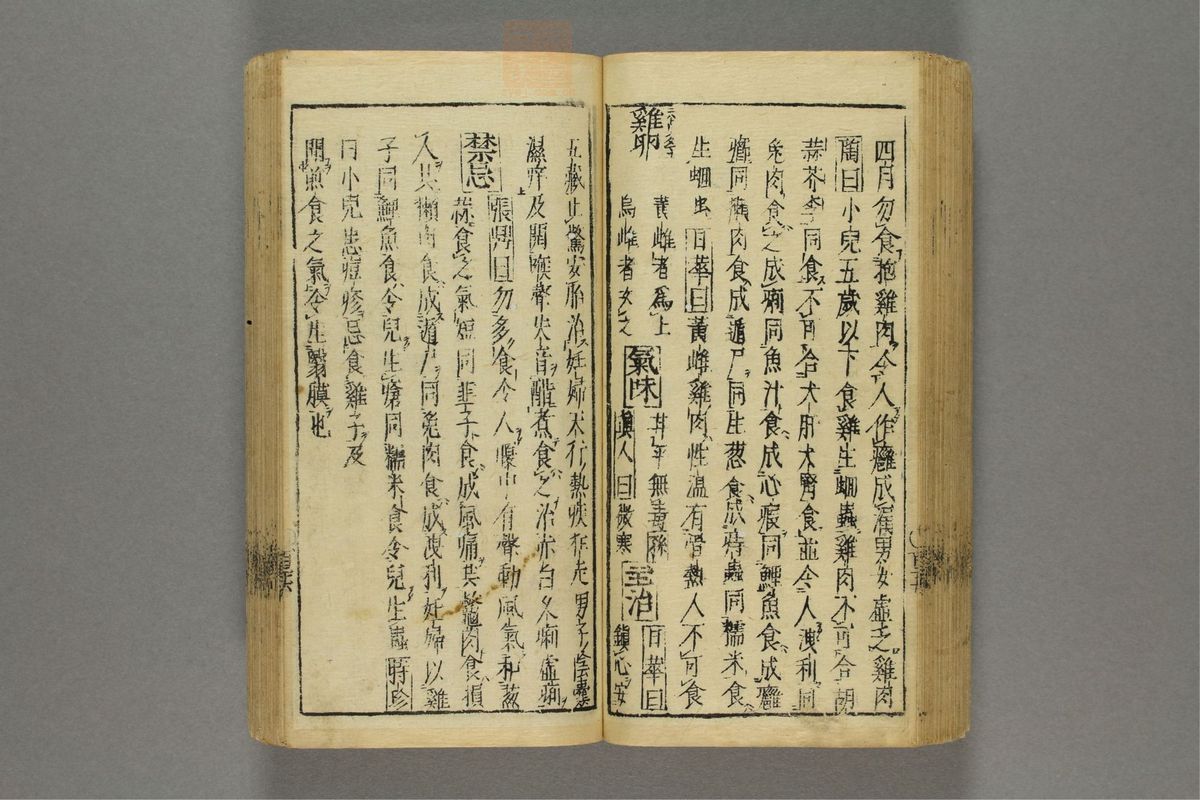 四月勿食抱雞肉令人作癰成漏男女虛乏雞肉
陶曰小兒五歲以下食雞生蛔蟲雞肉不可合胡
蒜芥李同食不可合犬肝犬腎食並令人洩利同
兎肉食之成痢同魚汁食成心瘕同鯉魚食成癰
癤同獺肉食成遁尸同生葱食成痔蟲同糯米食
生蛔虫日華曰黃雌雞肉性溫有骨熱人不可食
雞卵
黃雌者爲上
烏雌者次之
氣味
甘平無毒孫
眞人曰微寒
主治
日華曰
鎮心安
五藏止驚安胎治妊婦天行熱疾狂走男子陰囊
濕痒及開喉聲失音醋煮食之治赤白久痢虛痢
禁忌
張鼎曰勿多食令人腹中有聲動風氣和葱
蒜食之氣短同韭子食成風痛共鱉肉食損
人共獺肉食成遁尸同兎肉食成洩利妊婦以雞
子同鯉魚食令兒生瘡同糯米食令兒生蟲時珍
曰小兒患痘疹忌食雞子及
聞煎食之氣令生翳膜也